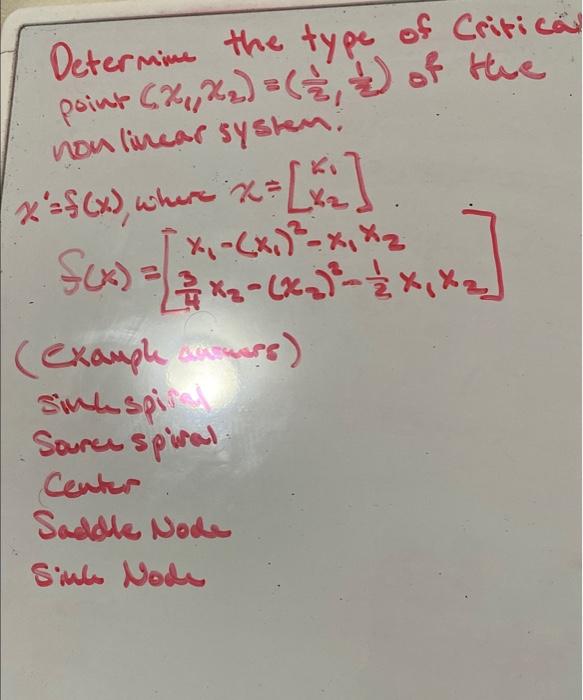 Determine the type of Critical
point (x₁, x₂) = (1/2, 1/2) of the
nonlinear system.
x' = f(x), where x = [x₁
x₂]
f(x) = [x₁ - (x₁)² - x₁x₂
3/4 x₂ - (x₂)² - 1/2 x₁x₂]
(Example answers)
Sink spiral
Source spiral
Center
Saddle Node
Sink Node